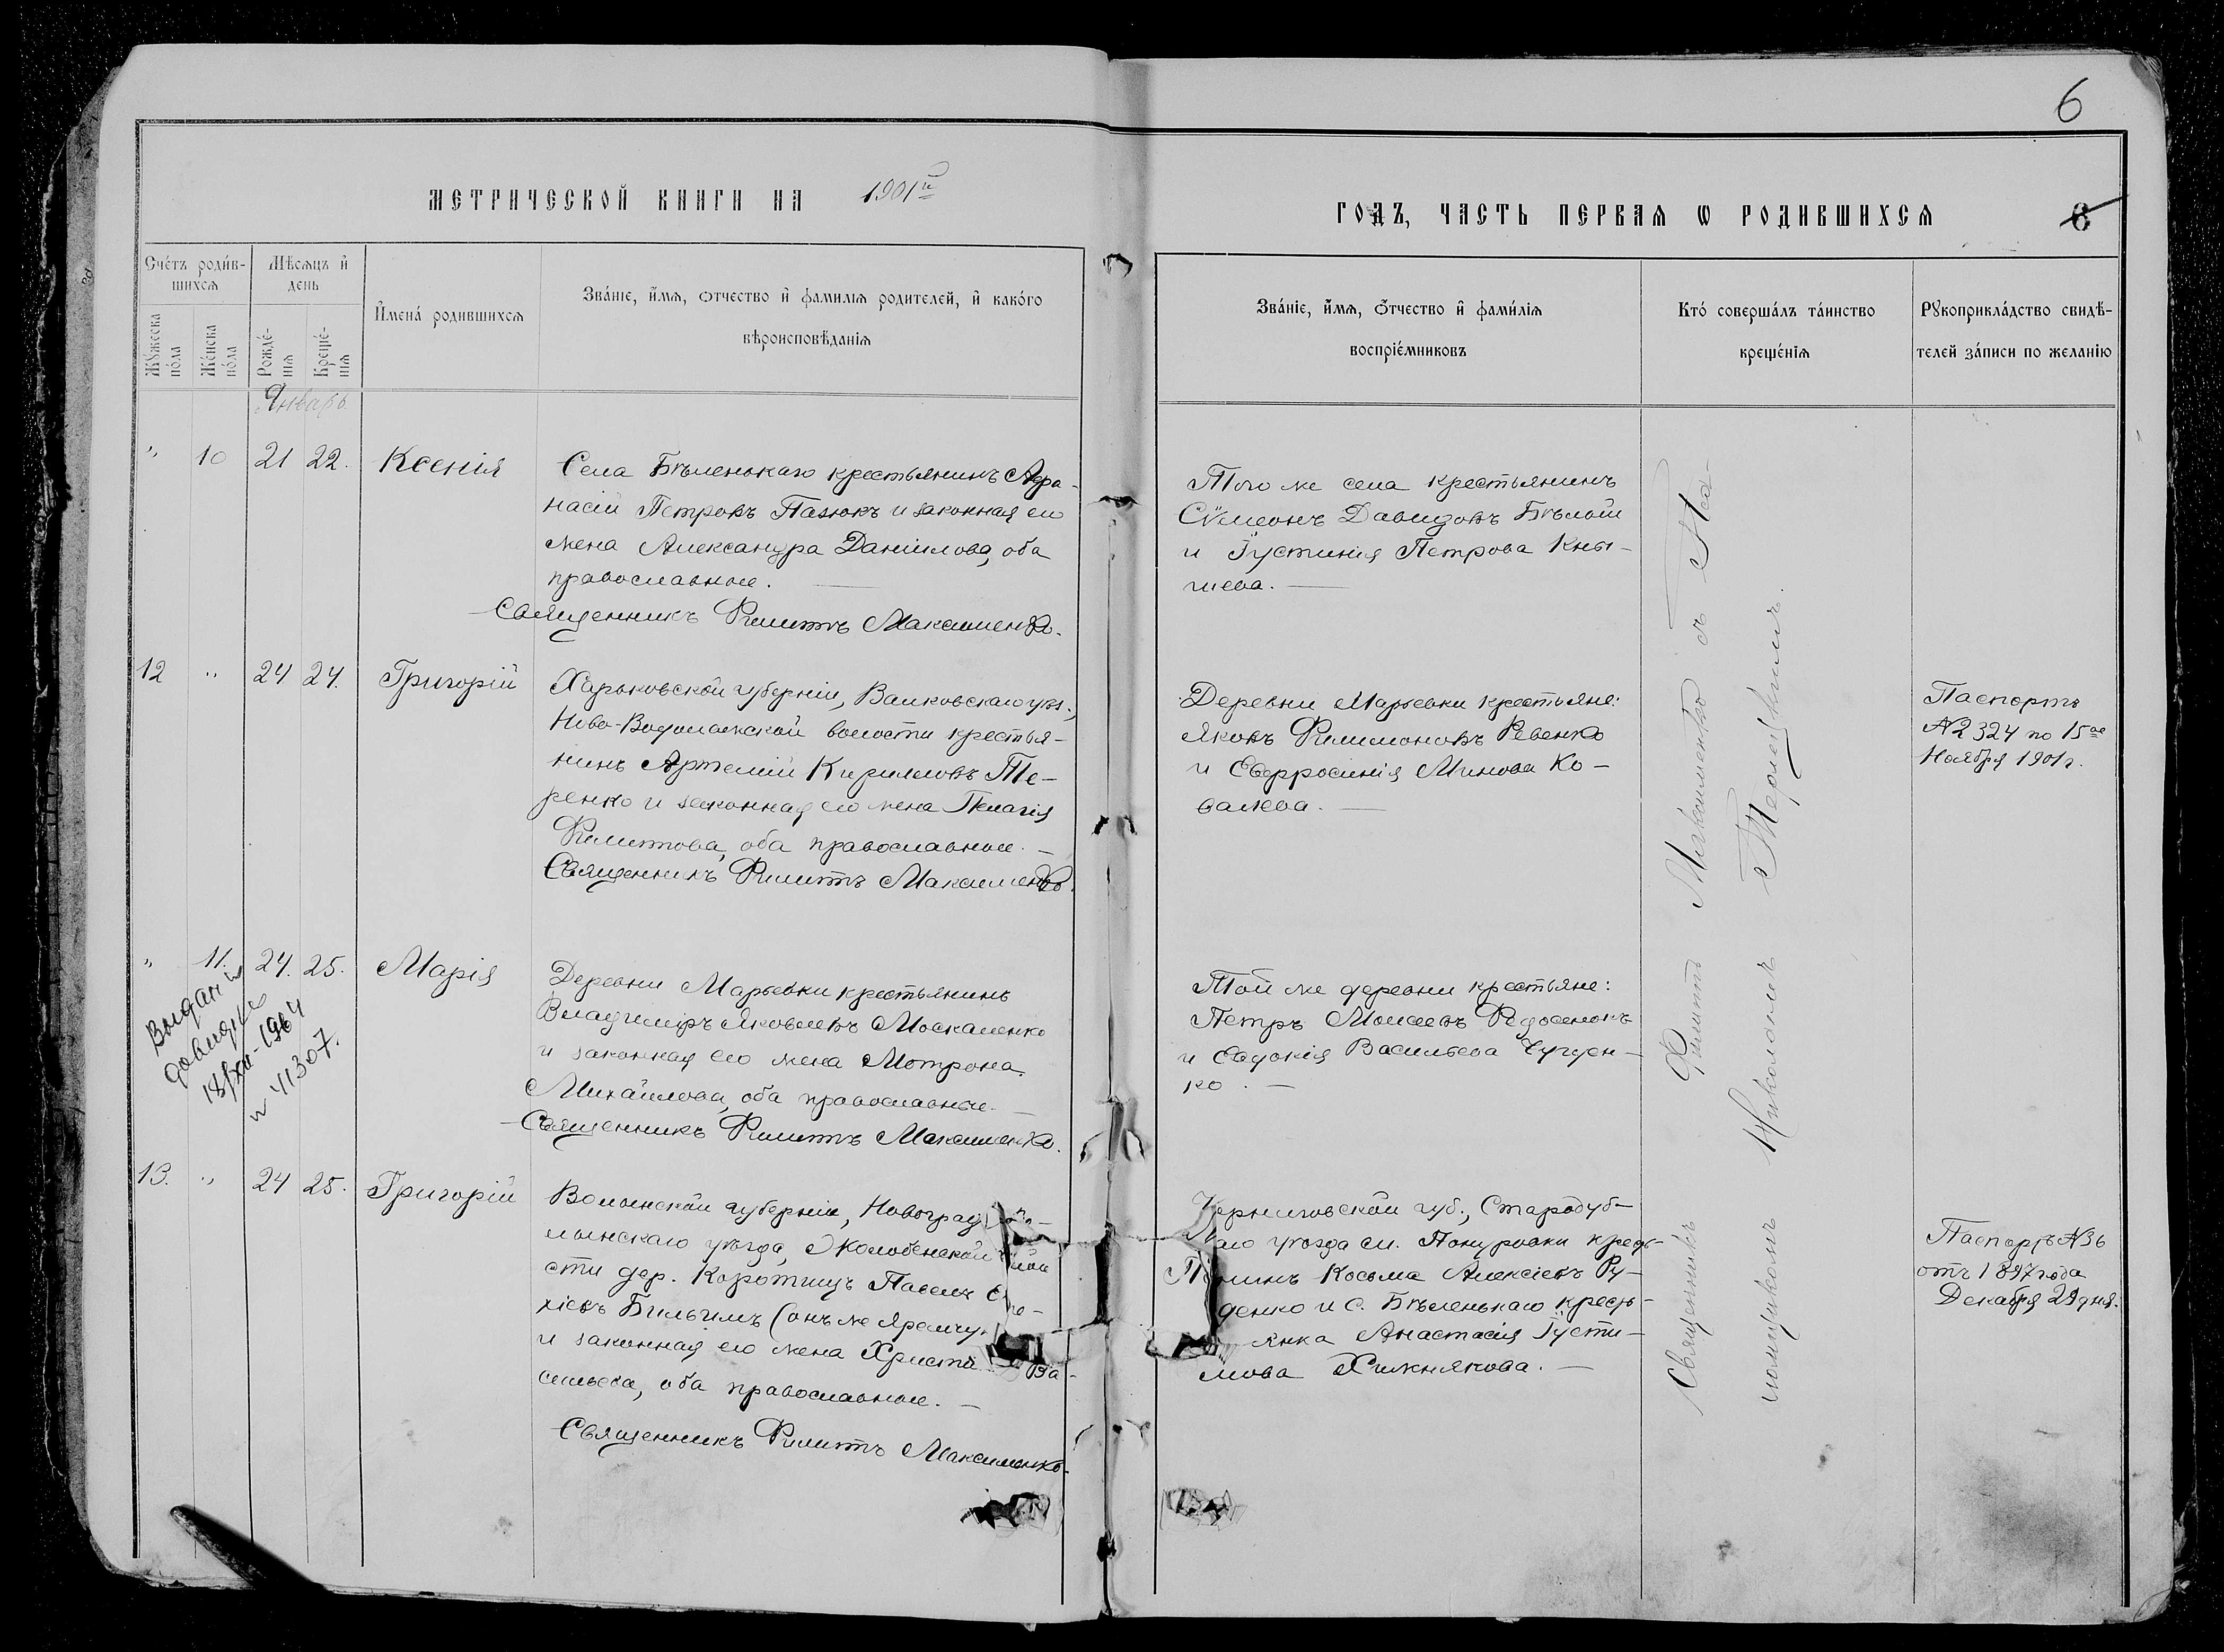 6
МЕТРИЧЕСКОЙ КНИГИ НА 1901й
ГОДЪ, ЧАСТЬ ПЕРВАЯ Ѡ РОДИВШИХСЯ 6
Сче́тъ роди́в-
шихсѧ
Мѣ́сѧцъ и҆
день
Мꙋ́жеска
по́ла
Же́нска
по́ла
Рожде́-
нїѧ
Креще́-
нїѧ
И҆мена́ родившихсѧ
Зва́нїе, и҆́мѧ, ѻ҆тчество и҆ фамилїѧ родителей, и҆ како́гѡ
вѣроисповѣданїѧ
Зва́нїе, и҆́мѧ, ѻ҆́тчество и҆ фами́лїѧ
воспрїе́мниковъ
Кто́ соверша́лъ та́инство
креще́нїѧ
Рꙋкоприкла́дство свидѣ́-
телей за́писи по жела́нїю
Январь
" 10 21 22. Ксенія
Села Бѣленькаго крестьянинъ Афа-
насій Петровъ Пазюкъ и законная его
жена Александра Даніилова, оба
православные.
Священникъ Филиппъ Максименко.
Того же села крестьянинъ
Сѵмеонъ Давидовъ Бѣлый
и Іустинія Петрова Кны-
шева.
12 " 24 24. Григорій
Харьковской губерніи, Валковскаго уѣз.,
Ново-Водолажской волости крестья-
нинъ Артемій Кирилловъ Те-
ренко и законная его жена Пелагія
Филиппова, оба православные.
Священникъ Филиппъ Максименко.
Деревни Марьевки крестьяне:
Яковъ Филимоновъ Ревенко
и Евфросинія Минова Ко-
валева.
Паспортъ
№ 324 по 15ое
Ноября 1901 г.
" 11. 24. 25. Марія
Выдан
довидка
18/XII-1964
N 41307.
Деревни Марьевки крестьянинъ
Владиміръ Яковлевъ Москаленко
и законная его жена Мотрона
Михайлова, оба православные.
Священникъ Филиппъ Максименко.
Той же деревни крестьяне:
Петръ Моисеевъ Федосенокъ
и Евдокія Васильева
ко.
13. " 24 25. Григорій
Волынской губерніи, Новоград
лынскаго уѣзда, Жолобенской
сти дер. Коротищъ Павелъ
хіевъ Бильчимъ (онъ же Яремчу
и законная его жена Христи Ва-
сильева, оба православные.
Священникъ Филиппъ Максименко.
Черниговской губ., Стародуб-
аго уѣзда сл. Понуровки кресть-
нинъ Косьма Алексіевъ Ру-
денко и с. Бѣленькаго кресть-
янка Анастасія Іусти-
нова Хижнякова.
Паспортъ №36
отъ 1897 года
Декабря 29 дня.
Священникъ Филиппъ Максименко съ Пса-
ломщикомъ Николаемъ